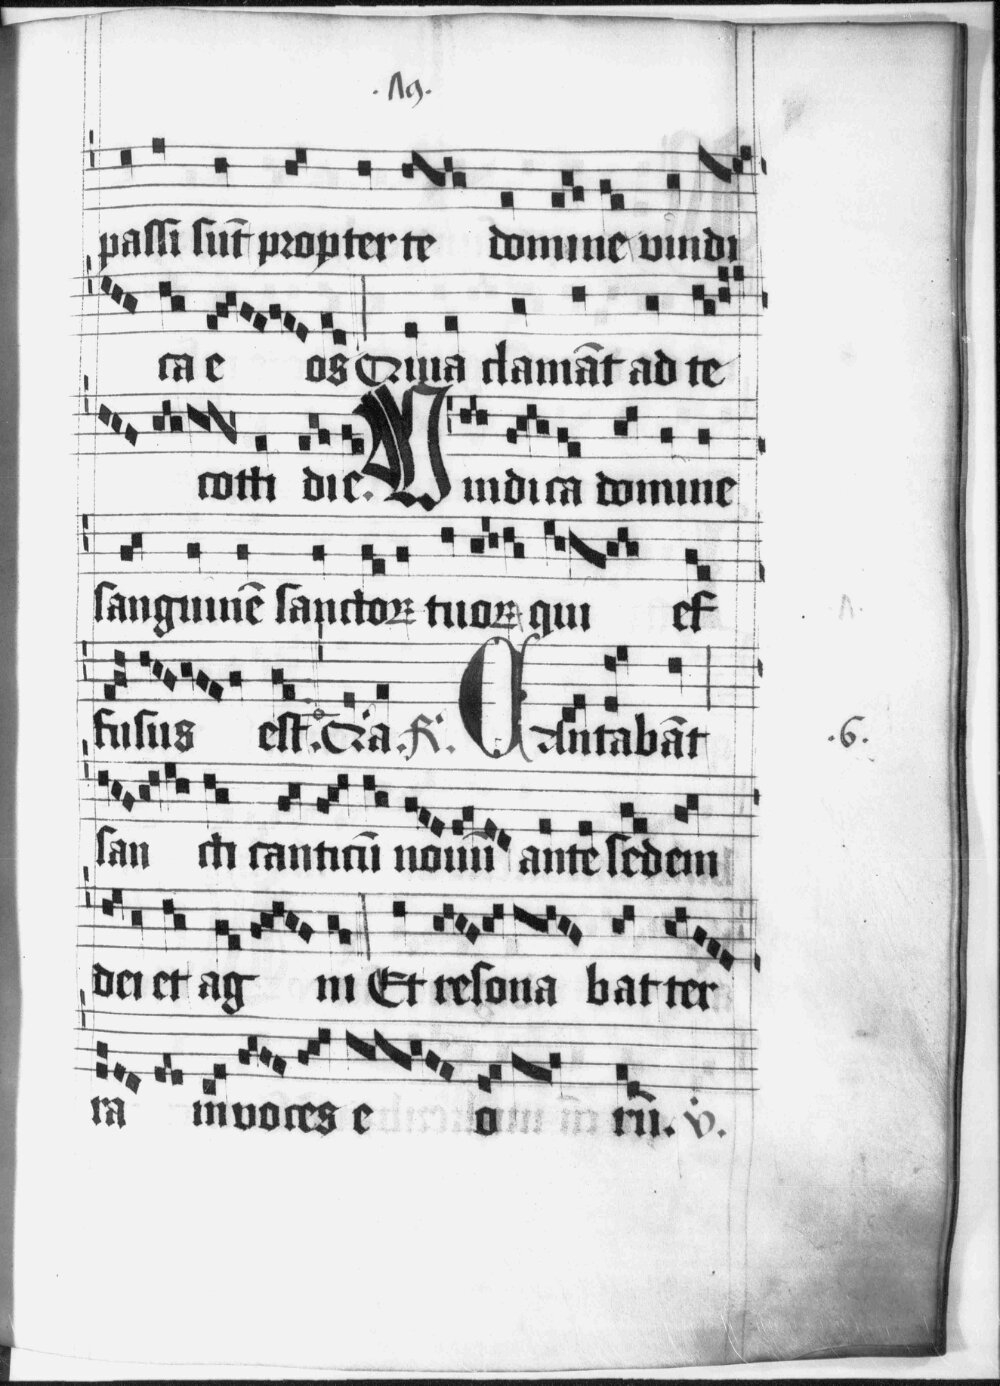 .Λ9.
passi sūt propter te domine vindi
ca e os Quia clamāt ad te
cotti die. Vindica domine
sanguinē sanctoꝝ tuoꝝ qui ef
fusus est. Q̇a. ℟. Cantabāt
.6.
san cti canticū nouū ante sedem
dei et ag ni Et resona bat ter
ra in voces e o rū. v̇.